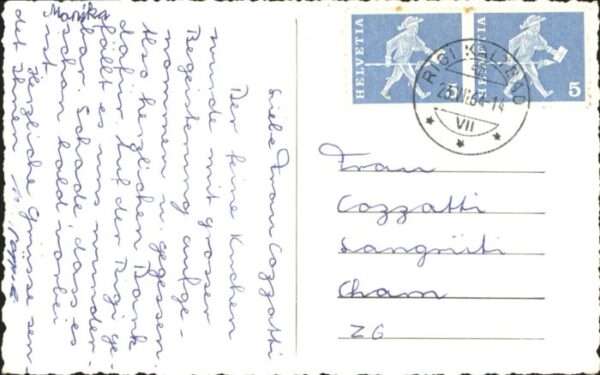 Liebe Frau Cozzatti
Der feine Kuchen
wurde mit grosser
Begeisterung aufge-
nommen u. gegessen
Also herzlichen Dank
dafür. Auf der Rigi ge-
fällt es uns wunder-
bar. Schade, dass es
schon bald vorbei
ist.
Herzliche Grüsse sen-
det Ihnen
Monika
HELVETIA
5
HELVETIA
5
RIGI KALTBAD
VII
Frau
Cozzatti
Langrüti
Cham
ZG